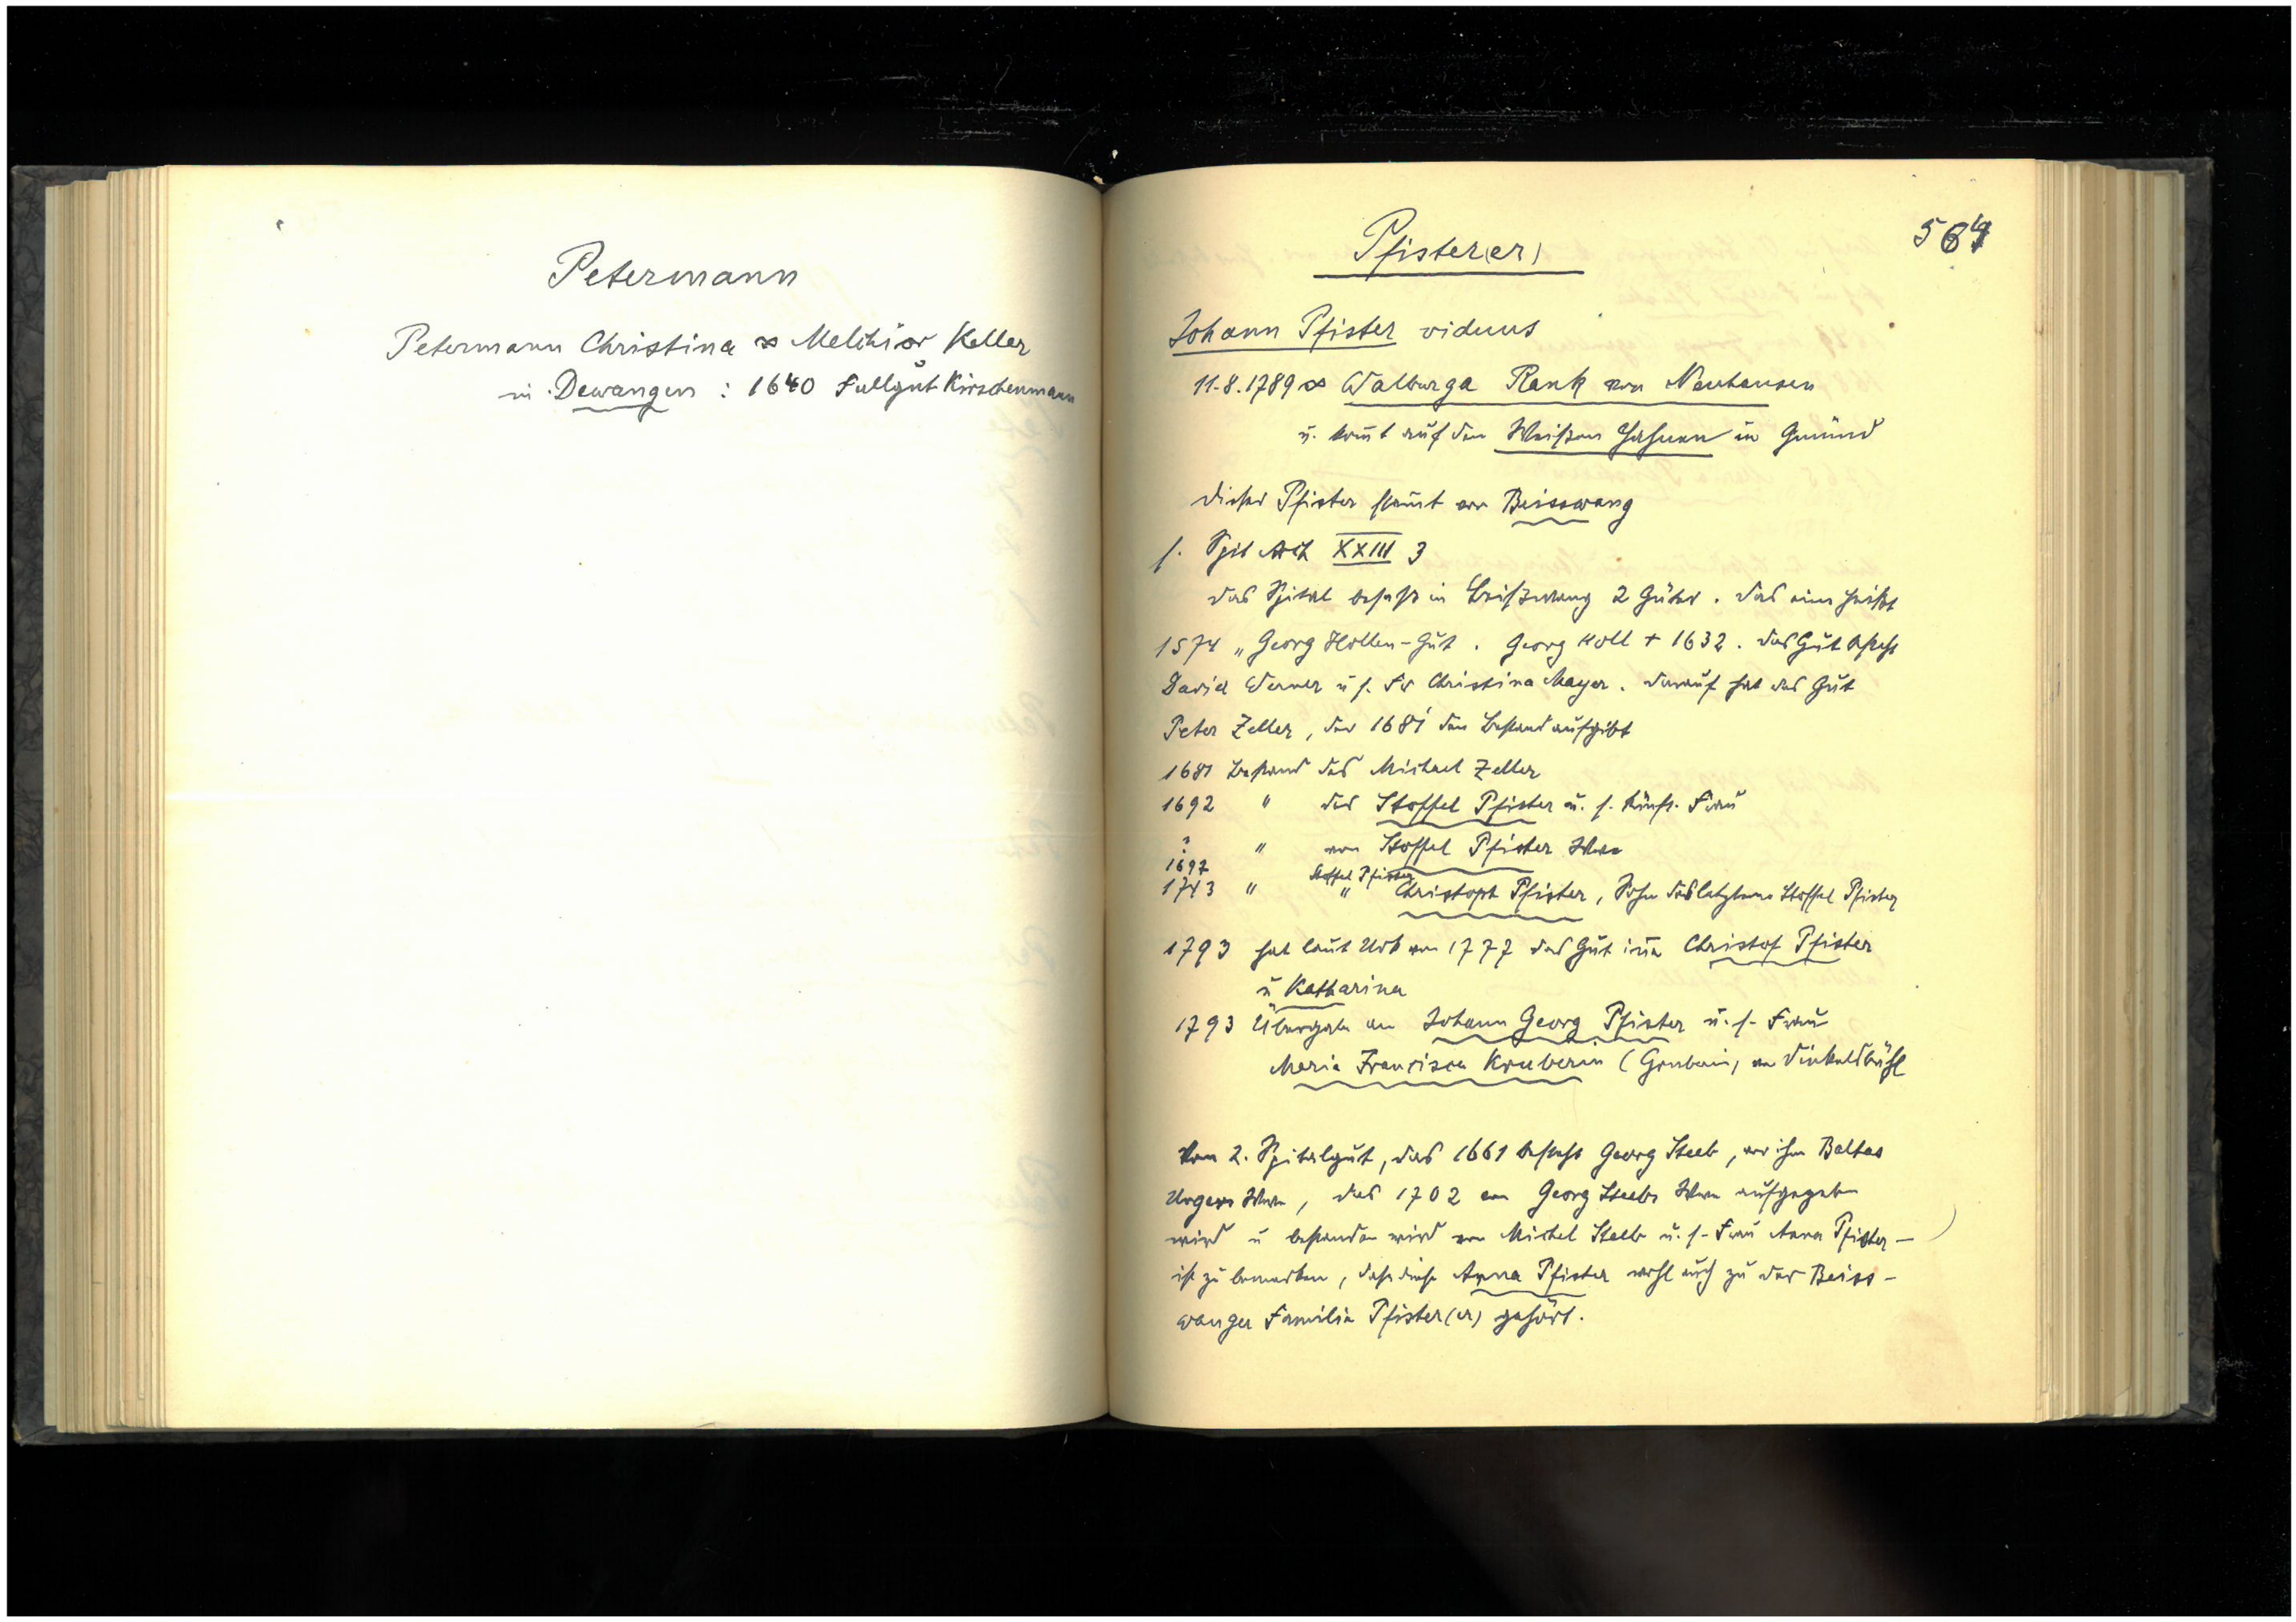 Petermann
Petermann Christina ∞ Melchior Keller
in Dewangen : 1640 Fallgut Kirschenmann
564
Pfister(er)
Johann Pfister viduus
11.8.1789 ∞ Walburga Rank von Neuhausen
u. komt auf den Weißen Hahnen in Gmünd
Dieser Pfister stamt von Beisswang
s. Spit Arch XXIII 3
Das Spital besaß in Beißwang 2 Güter. Das eine heißt
1574 „Georg Hollen-Gut. Georg Holl + 1632. Das Gut besteht
David Werner u s. Fr Christina Mayer. Darauf hat das Gut
Peter Zeller, der 1681 den Bestand aufgibt
1681 Bestand des Michael Zeller
1692 " des Stoffel Pfister u. s. künft. Frau
? " von Stoffel Pfister Wwe
1697 Stoffel Pfister
1743 " " Christoph Pfister, Sohn des letztens Stoffel Pfister
1793 hat laut Urb von 1777 das Gut inne Christof Pfister
u Katharina
1793 Übergabe an Johann Georg Pfister u. s. Frau
Maria Francisca Kruberin (Gruberin) von Dinkelsbühl
Vom 2. Spitalgut, das 1661 besteht Georg Steeb, vor ihm Baltas
Ungers Wwe, das 1702 von Georg Steebs Wwe aufgegeben
wird u bestanden wird von Michel Steeb u. s. Frau Anna Pfister -
ist zu bemerken, dass diese Anna Pfister wohl auch zu der Beiss-
wanger Familie Pfister(er) gehört.